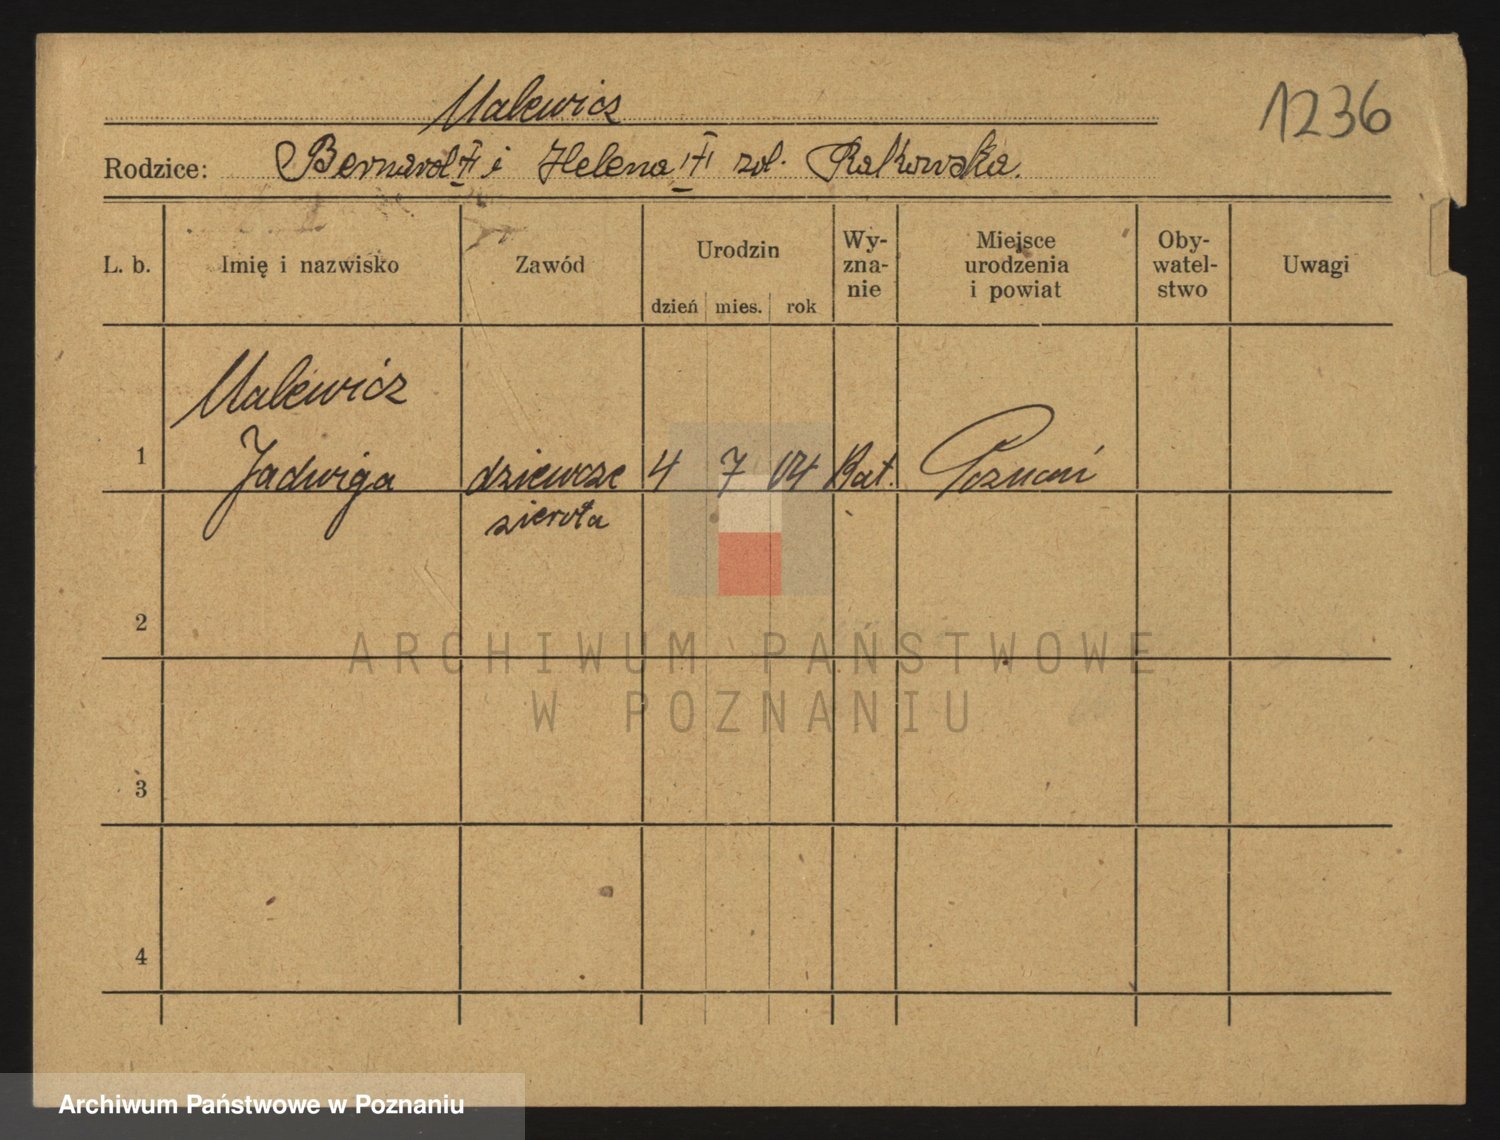 Malewicz
1236
Rodzice: Bernard i Helena zd. Rakowska.
L. b. Imię i nazwisko Zawód Urodzin dzień mies. rok Wy-zna-nie Miejsce urodzenia i powiat Oby-watel-stwo Uwagi
Malewicz
1 Jadwiga dziewcze 4 7 04 Kat. Poznań
sierota
2
ARCHIWUM PAŃSTWOWE
W POZNANIU
3
4
Archiwum Państwowe w Poznaniu